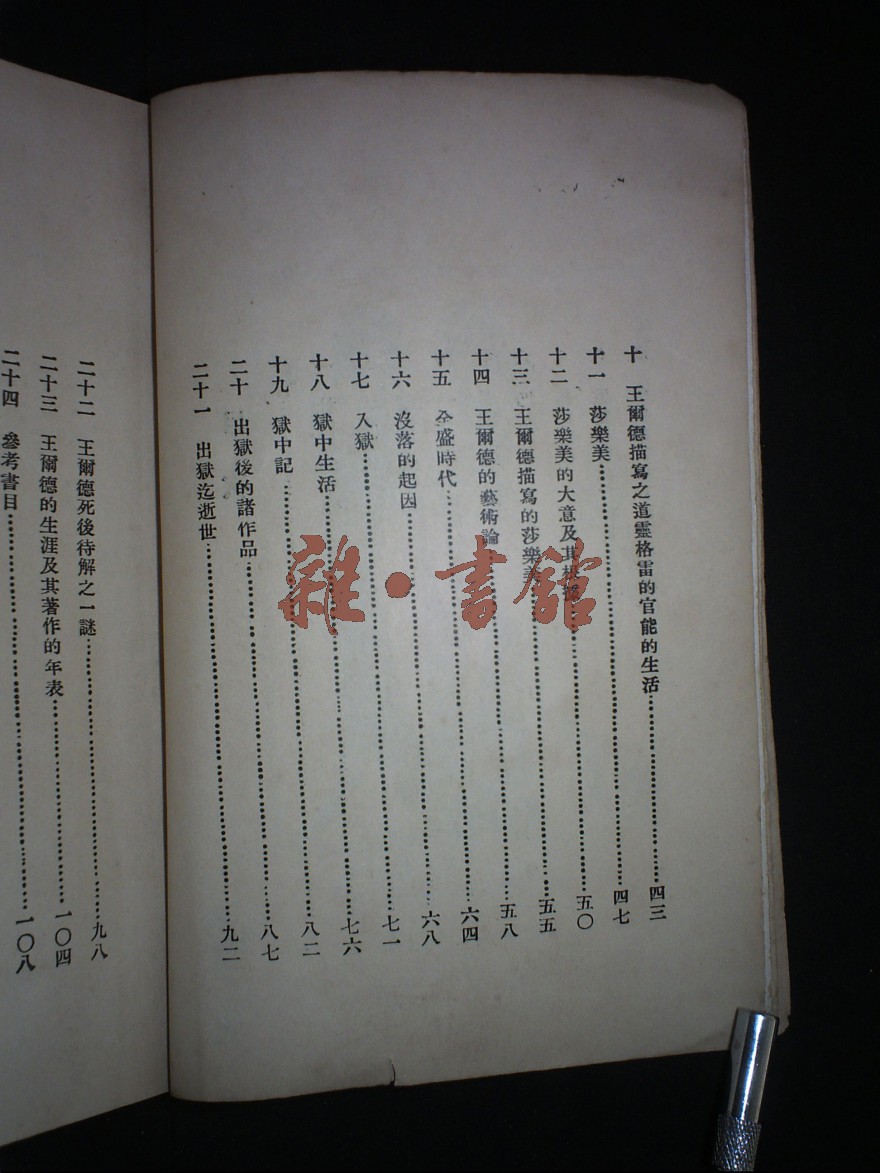 十　王爾德描寫之道靈格雷的官能的生活……四三
十一　莎樂美……四七
十二　莎樂美的大意及其……五〇
十三　王爾德描寫的莎樂美……五五
十四　王爾德的藝術論……五八
十五　全盛時代……六四
十六　沒落的起因……六八
十七　入獄……七一
十八　獄中生活……七六
十九　獄中記……八二
二十　出獄後的諸作品……八七
二十一　出獄迄逝世……九二
二十二　王爾德死後待解之一謎……九八
二十三　王爾德的生涯及其著作的年表……一〇四
二十四　參考書目……一〇八
雜·書館